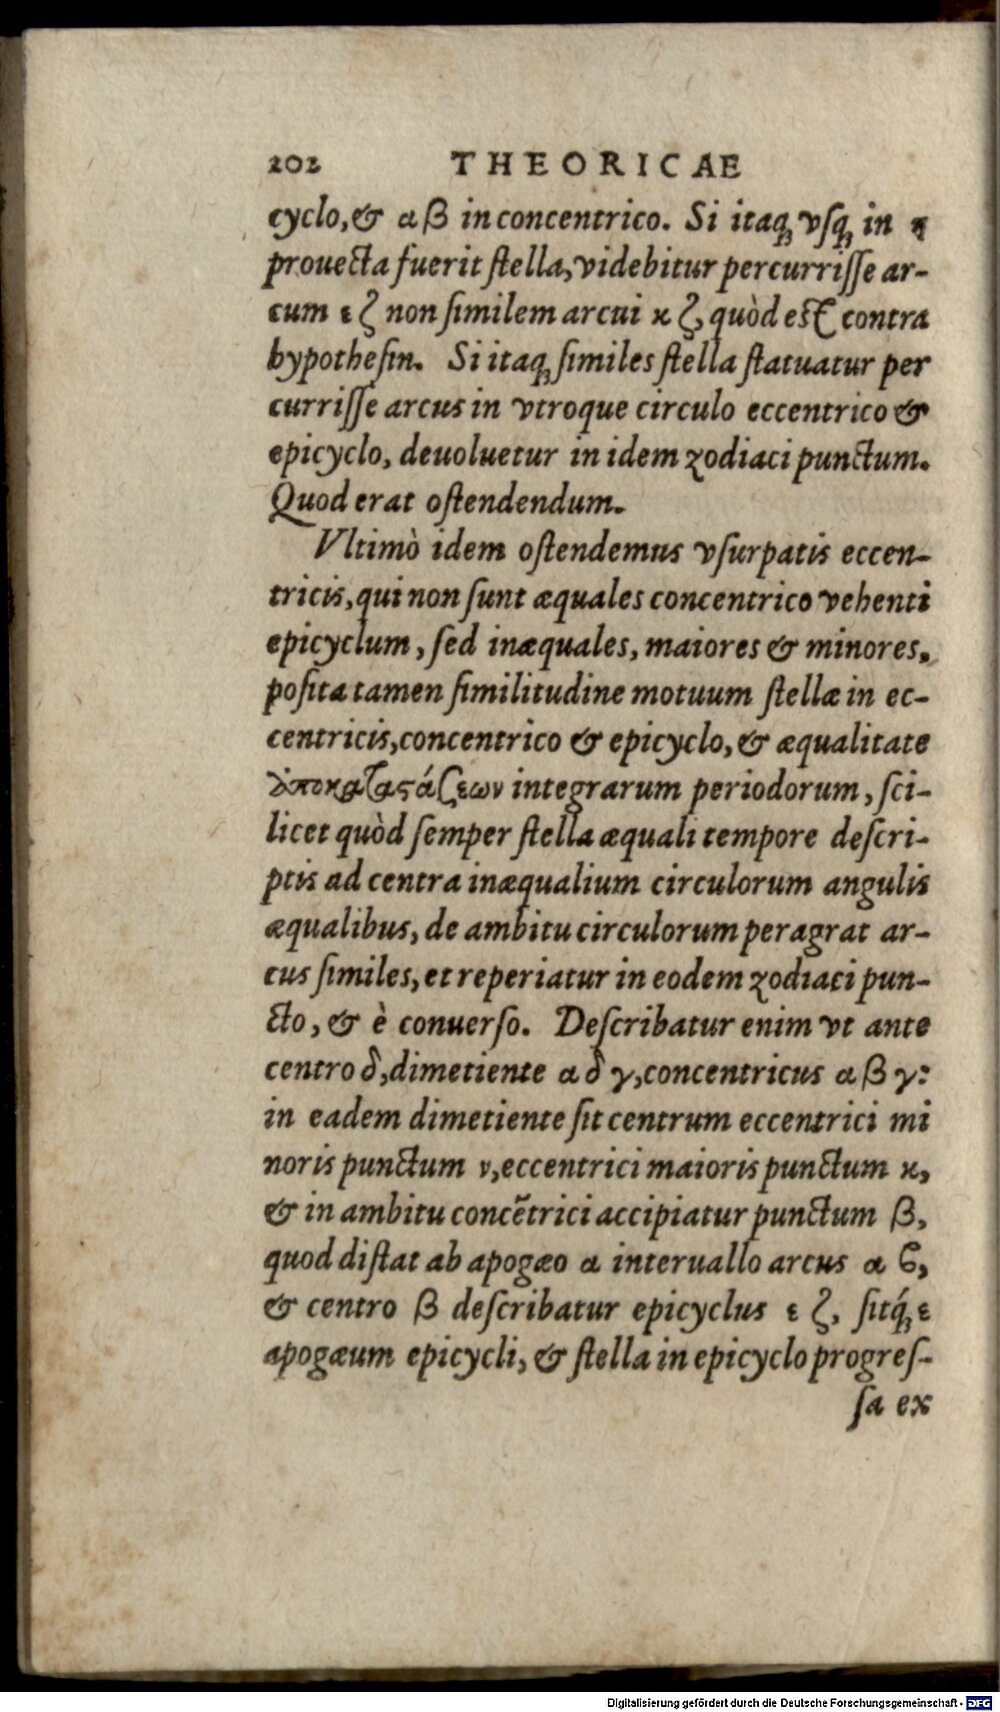 202 THEORICAE
cyclo, & α β in concentrico. Si itaq; vſq; in η
prouecta fuerit ſtella, videbitur percurriſſe ar-
cum ε ζ non ſimilem arcui κ ζ, quòd eſt contra
hypotheſin. Si itaq; ſimiles ſtella ſtatuatur per
curriſſe arcus in vtroque circulo eccentrico &
epicyclo, deuoluetur in idem zodiaci punctum.
Quod erat oſtendendum.
Vltimò idem oſtendemus vſurpatis eccen-
tricis, qui non ſunt æquales concentrico vehenti
epicyclum, ſed inæquales, maiores & minores,
poſita tamen ſimilitudine motuum ſtellæ in ec-
centricis, concentrico & epicyclo, & æqualitate
ἀποκαταστάσεων integrarum periodorum, ſci-
licet quòd ſemper ſtella æquali tempore deſcri-
ptis ad centra inæqualium circulorum angulis
æqualibus, de ambitu circulorum peragrat ar-
cus ſimiles, et reperiatur in eodem zodiaci pun-
cto, & è conuerſo. Deſcribatur enim vt ante
centro δ, dimetiente α δ γ, concentricus α β γ:
in eadem dimetiente ſit centrum eccentrici mi
noris punctum ν, eccentrici maioris punctum κ,
& in ambitu concẽtrici accipiatur punctum β,
quod diſtat ab apogæo α interuallo arcus α ϐ,
& centro β deſcribatur epicyclus ε ζ, ſitq́; ε
apogæum epicycli, & ſtella in epicyclo progreſ-
ſa ex
Digitalisierung gefördert durch die Deutsche Forschungsgemeinschaft - DFG